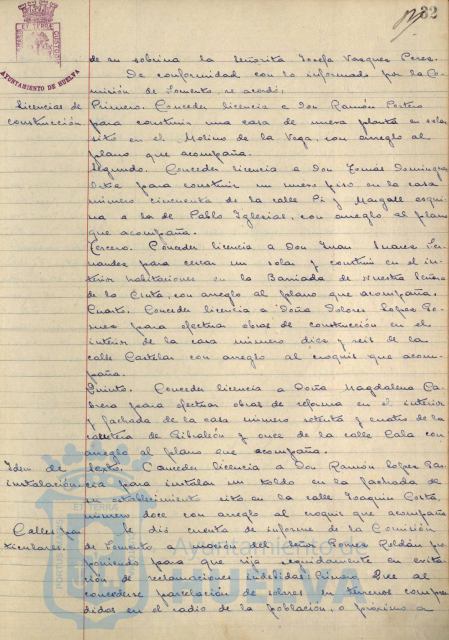 32
AYUNTAMIENTO DE HUELVA
de su sobrina la Señorita Josefa Vazquez Perez.
De conformidad con lo informado por la Co-
misión de Fomento, se acordó:
licencias de construcción
Primero. Conceder licencia a Don Ramón
para construir una casa de nueva planta en solar
sito en el Molino de la Vega, con arreglo al
plano que acompaña.
Segundo. Conceder licencia a Don Tomás Domínguez
para construir un nuevo piso en la casa
número cincuenta de la calle Pi y Margall esqui-
na a la de Pablo Iglesias, con arreglo al plano
que acompaña.
Tercero. Conceder licencia a Don Juan Suarez Fer-
nandez para cercar un solar y construir en el in-
terior habitaciones en la Barriada de Nuestra Señora
de la Cinta, con arreglo al plano que acompaña.
Cuarto. Conceder licencia a Doña Dolores Lopez Go-
mez para efectuar obras de construcción en el
interior de la casa número diez y seis de la
calle Castelar con arreglo al croquis que acom-
paña.
Quinto. Conceder licencia a Doña Magdalena Ca-
brera para efectuar obras de reforma en el interior
y fachada de la casa número setenta y cuatro de la
carretera de Gibraleón y once de la calle Cala con
arreglo al plano que acompaña.
Idem de instalación
Sexto. Conceder licencia a Don Ramón Lopez Gar-
cía para instalar un toldo en la fachada de
su establecimiento sito en la calle Joaquín Costa,
número doce con arreglo al croquis que acompaña
Calles par-
ticulares.
Se dió cuenta de informe de la Comisión
de Fomento moción del Señor Ponce Roldán pro-
poniendo para que rija seguidamente en evita-
ción de reclamaciones indebidas: Primero. Que al
concederse parcelación de solares en terrenos compren-
didos en el radio de la población, o próximo a
Ayuntamiento de
HUELVA